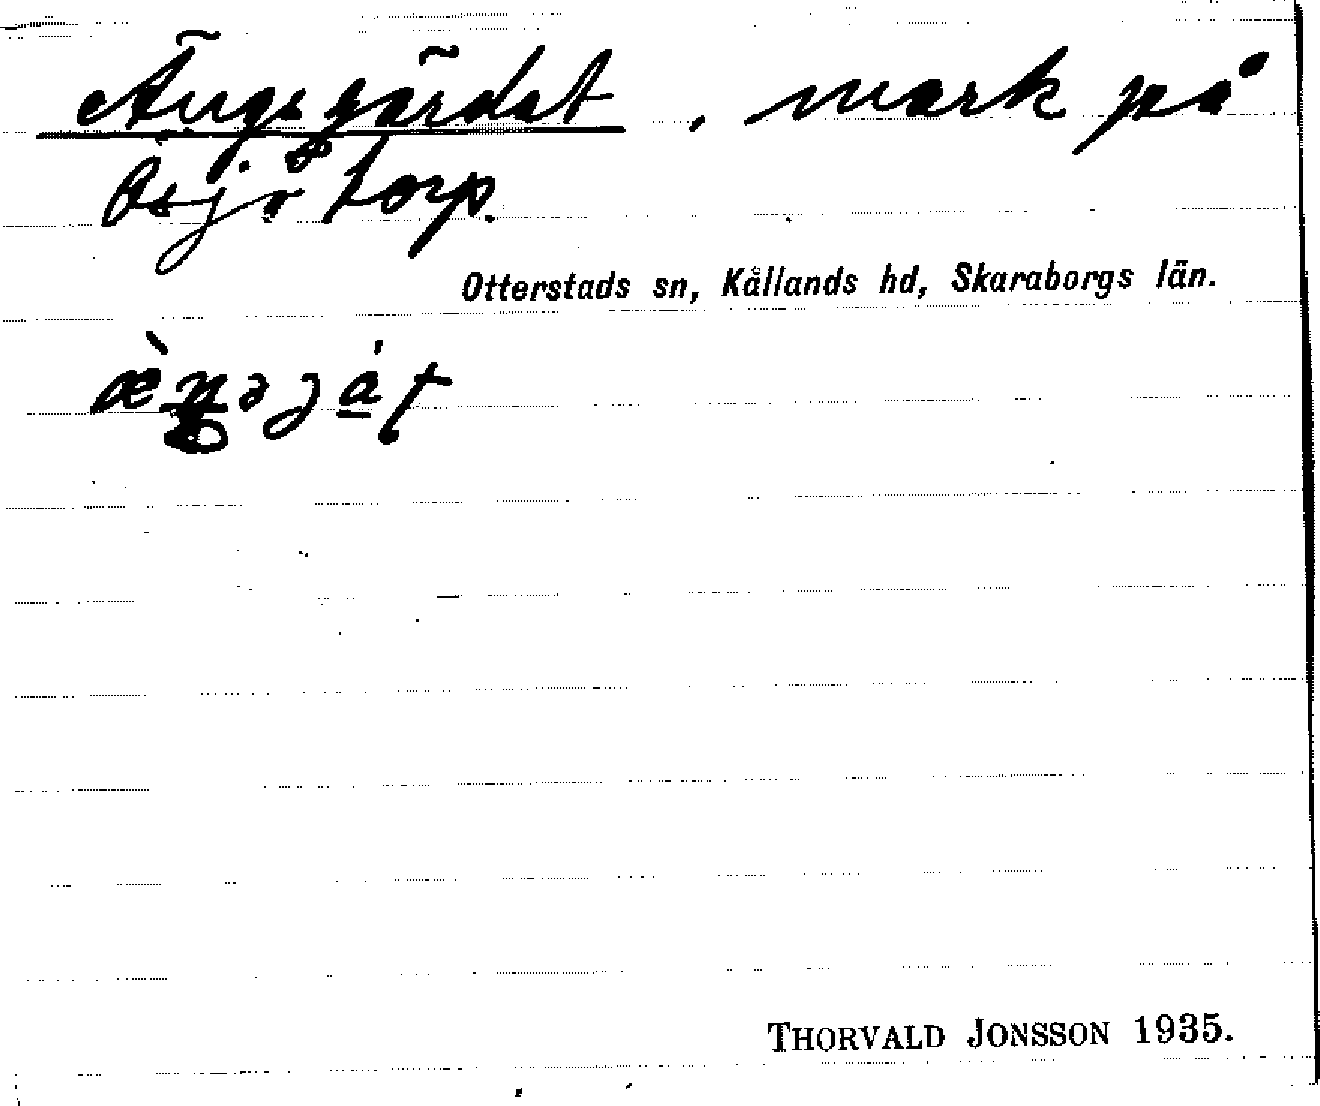 Ängsgärdet, mark på
Åsjötorp.
Otterstads sn, Kållands hd, Skaraborgs län.
THORVALD JONSSON 1935.